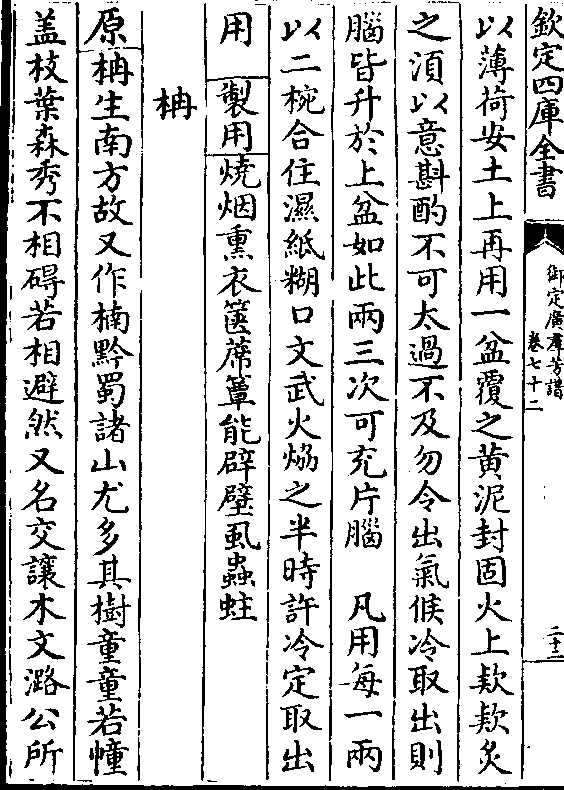 欽定四庫全書
御定廣羣芳譜
卷七十二
二十二
以薄荷安土上再用一盆覆之黄泥封固火上款款炙
之湏以意斟酌不可太過不及勿令出氣候冷取出則
腦皆升於上盆如此兩三次可充片腦　凡用每一兩
以二椀合住濕紙糊口文武火煏之半時許冷定取出
用
製用燒烟熏衣篋蓆簟能辟壁虱蟲蛀
柟
原柟生南方故又作楠黔蜀諸山尤多其樹童童若幢
盖枝葉森秀不相碍若相避然又名交讓木文潞公所